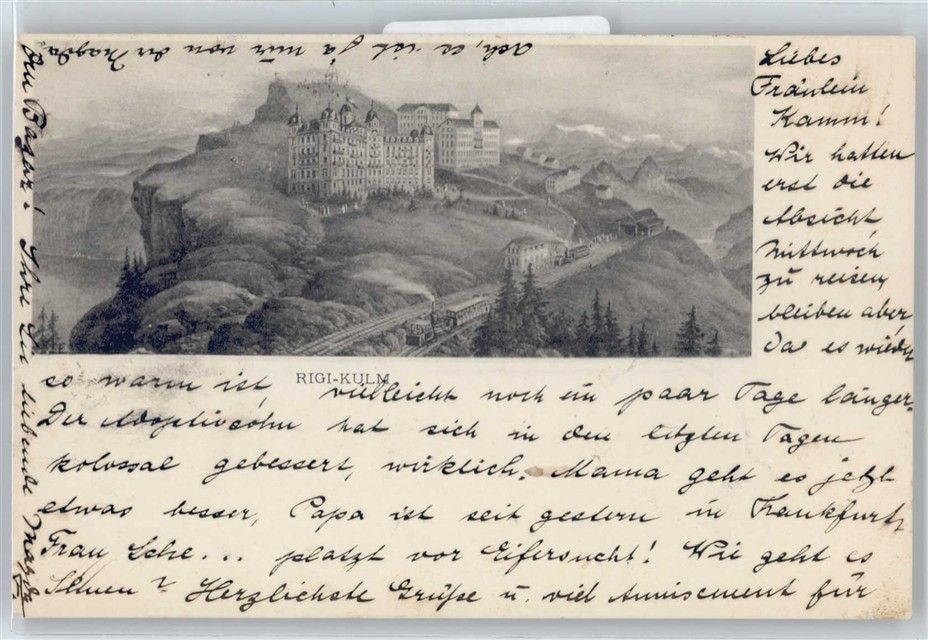 Liebes
Fräulein
Kamm!
Wir hatten
erst die
Absicht
Mittwoch
zu reisen
bleiben aber
da es wieder
so warm ist, vielleicht noch ein paar Tage länger.
RIGI-KULM
Der Adoptivsohn hat sich in den letzten Tagen
kolossal gebessert, wirklich. Mama geht es jetzt
etwas besser, Papa ist seit gestern in Frankfurt,
Frau Sche... platzt vor Eifersucht! Wie geht es
Ihnen? Herzlichste Grüße u. viel Amüsement für
den Bazar! Ihre Sie liebende Magda
Ach, es ist ja nur von der Magda